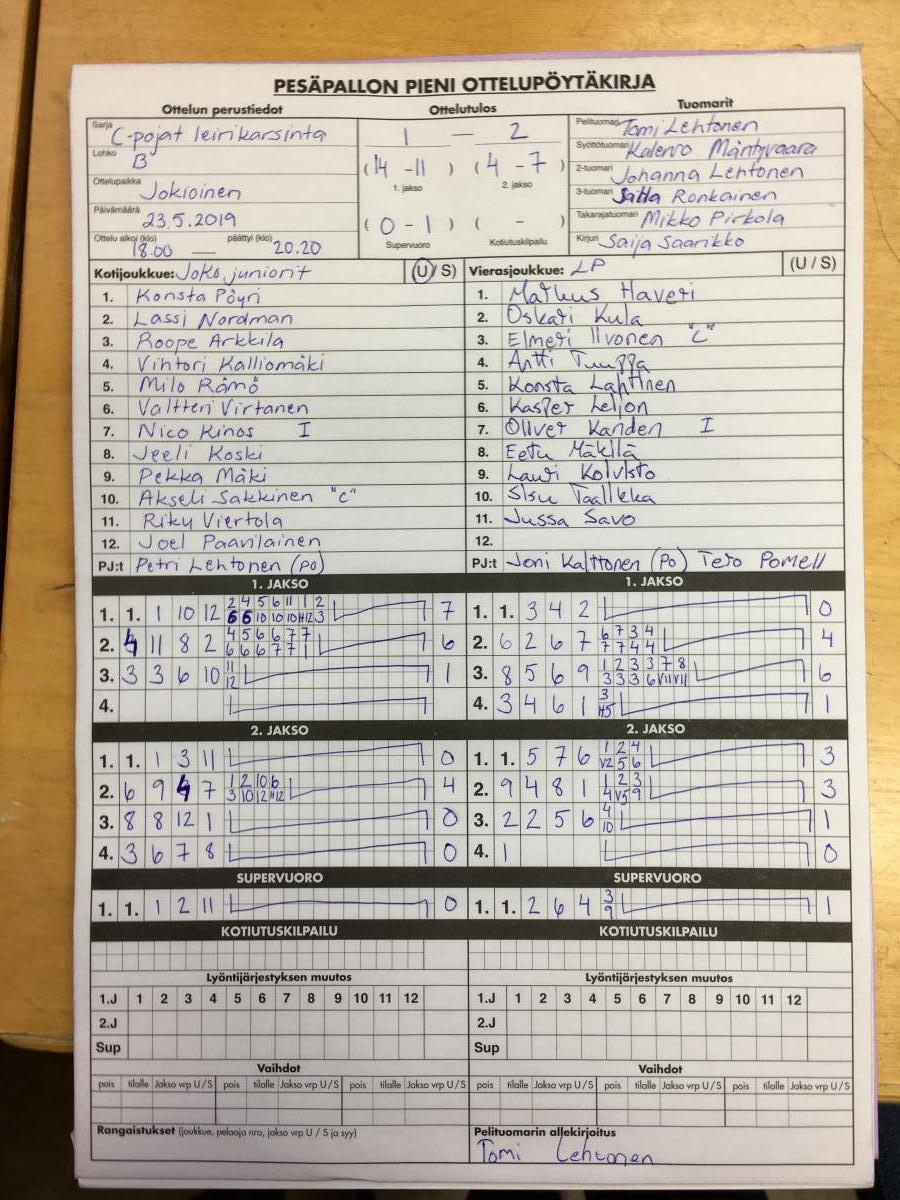 PESÄPALLON PIENI OTTELUPÖYTÄKIRJA
Ottelun perustiedot Ottelutulos Tuomarit
Sarja C-pojat leirikarsinta
Lohko B
Ottelupaikka Jokioinen
Päivämäärä 23.5.2019
Ottelu alkoi (klo) päättyi (klo)
18.00 — 20.20
1 — 2
(14 - 11) (4 - 7)
1. jakso 2. jakso
(0 - 1) ( - )
Supervuoro Kotiutuskilpailu
Pelituomari Tomi Lehtonen
Syöttötuomari Kalervo Mäntyvaara
2-tuomari Johanna Lehtonen
3-tuomari Satta Ronkainen
Takarajatuomari Mikko Pirkola
Kirjuri Saija Saarikko
Kotijoukkue: JoKo juniorit (U / S)
1. Konsta Pöyri
2. Lassi Nordman
3. Roope Arkkila
4. Vihtori Kalliomäki
5. Milo Rämö
6. Valtteri Virtanen
7. Nico Kinos I
8. Jeeli Koski
9. Pekka Mäki
10. Akseli Sakkinen "c"
11. Riky Viertola
12. Joel Paavilainen
PJ:t Petri Lehtonen (po)
Vierasjoukkue: LP (U / S)
1. Markus Haveri
2. Oskari Kula
3. Elmeri Iivonen "C"
4. Antti
5. Konsta Lahtinen
6. Kasper
7. Oliver Kanden I
8. Eetu Mäkilä
9. Lauri Koivisto
10. Sisu Taalikka
11. Jussa Savo
12.
PJ:t Joni Kalttonen (Po) Tero Pomell
1. JAKSO
1. 1. 1 10 12 2 4 5 6 11 1 2 7
6 6 10 10 10 H12 3
2. 4 11 8 2 4 5 6 6 7 7 6
6 6 6 7 7 1
3. 3 6 10 11 1
12
4.
1. JAKSO
1. 1. 3 4 2 0
2. 6 2 6 7 6 7 3 4 4
7 7 4 4
3. 8 5 6 9 1 2 3 3 7 8 6
3 3 3 6 V11 V11
4. 3 4 6 1 3 1
H5
2. JAKSO
1. 1. 1 3 11 0
2. 6 9 4 7 1 2 10 6 4
3 10 12 H12
3. 8 8 12 1 0
4. 3 6 7 8 0
2. JAKSO
1. 1. 5 7 6 1 2 4 3
V2 5 6
2. 9 4 8 1 1 2 3 3
4 V5 9
3. 2 2 5 6 4 1
10
4. 1 0
SUPERVUORO
1. 1. 1 2 11 0
SUPERVUORO
1. 1. 2 6 4 3 1
9
KOTIUTUSKILPAILU KOTIUTUSKILPAILU
Lyöntijärjestyksen muutos Lyöntijärjestyksen muutos
1.J 1 2 3 4 5 6 7 8 9 10 11 12 1.J 1 2 3 4 5 6 7 8 9 10 11 12
2.J 2.J
Sup Sup
Vaihdot Vaihdot
pois tilalle Jakso vrp U / S pois tilalle Jakso vrp U / S pois tilalle Jakso vrp U / S pois tilalle Jakso vrp U / S pois tilalle Jakso vrp U / S pois tilalle Jakso vrp U / S
Rangaistukset (joukkue, pelaaja nro, jakso vrp U / S ja syy) Pelituomarin allekirjoitus
Tomi Lehtonen